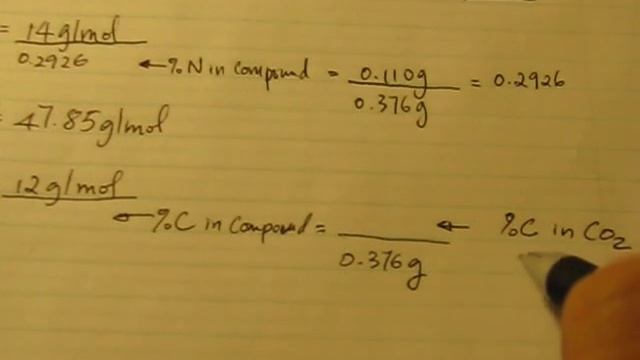 = 14g/mol
0.2926 ← %N in Compound = 0.110g / 0.376g = 0.2926
= 47.85g/mol
12g/mol
← %C in Compound = / 0.376g ← %C in CO₂